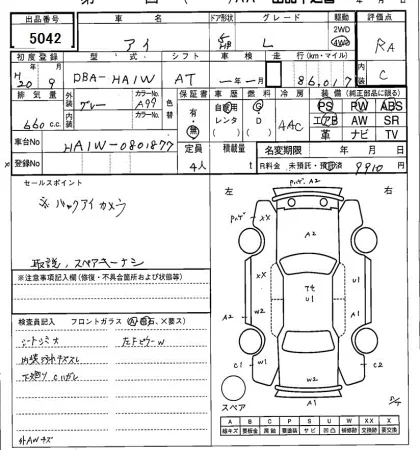 出品番号 車名 ドア形状 グレード 駆動 評価点
5042 アイ 5 HB L 2WD 4WD RA
初度登録 型式 シフト 車検 走行(km・マイル)
H20 9 DBA-HA1W AT ー年ー月 86,017 C
排気量 外装 カラーNo. 色替 保証書 車歴 燃料 冷房 装備(純正部品に限る)
660 c.c. グレー A99 有・無 自家用 レンタ G D AAC PS PW ABS
内装 カラーNo. エアB AW SR
革 ナビ TV
車台No HA1W-0801877 定員 積載量 名変期限 年 月 日
登録No 4人 t R料金 未預託・預託済 9910円
セールスポイント 左 右
※バックアイカメラ
取説、スペアキーナシ
※注意事項記入欄(修復・不具合箇所および状態等)
検査員記入 フロントガラス(A、飛石、X要ス)
シートシミ大 左FピラーW
内装ヨゴレキズスレ
下廻りCハガレ
外AWキズ
バンパ A2
バンパ XX A2
XX A2 U1
A1
U1 A1
A2 W2 A2
C1 W1 W2 U1 C2
A1
スペア
A B C P S U W XX X
線キズ 要板金 腐蝕 要塗装 サビ 凹凸 補修跡 交換跡 要交換